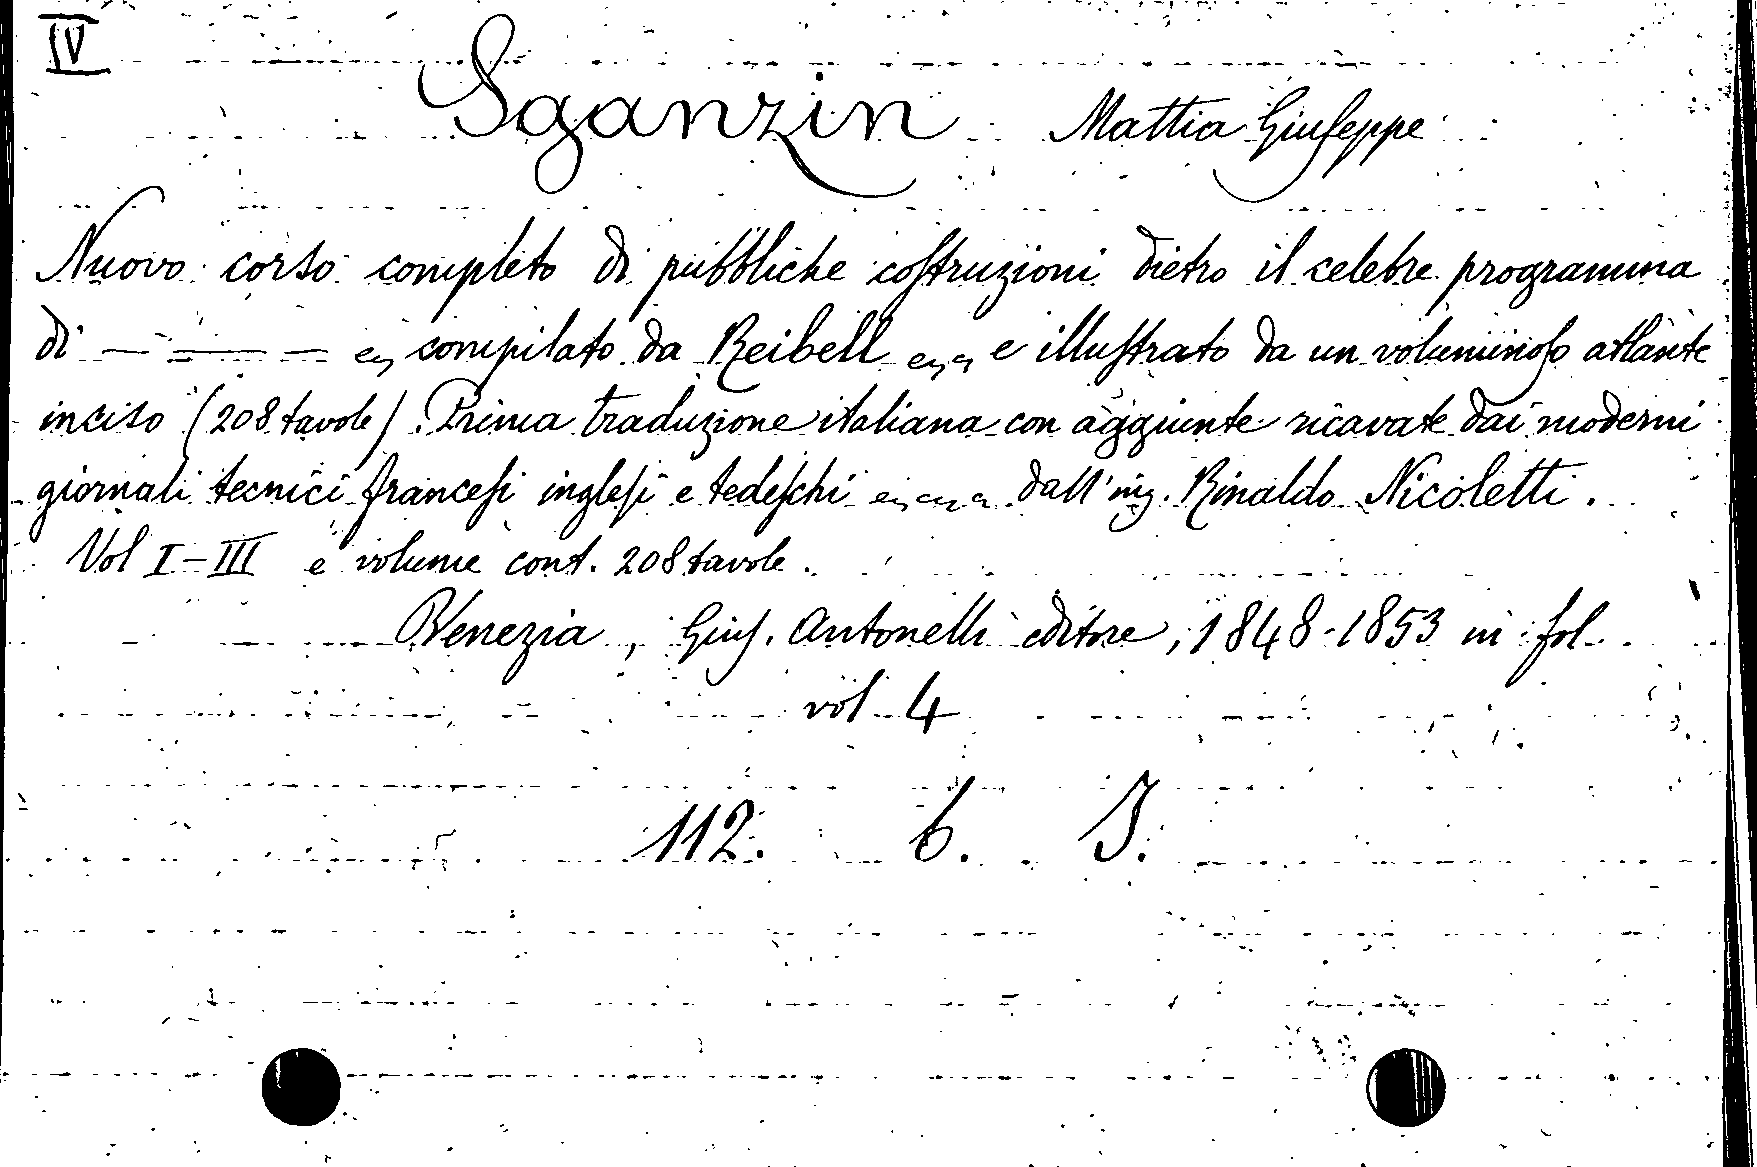 IV
Sganzin Mattia Giuseppe
Nuovo corso completo di pubbliche costruzioni dietro il celebre programma
di — — — compilato da Reibell e illustrato da un voluminoso atlante
inciso (208 tavole). Prima traduzione italiana con aggiunte ricavate dai moderni
giornali tecnici francesi inglesi e tedeschi dall'ing. Rinaldo Nicoletti.
Vol I-III e volume cont. 208 tavole.
Venezia, Gius. Antonelli editore, 1848-1853 in fol.
vol 4
112. 6. J.